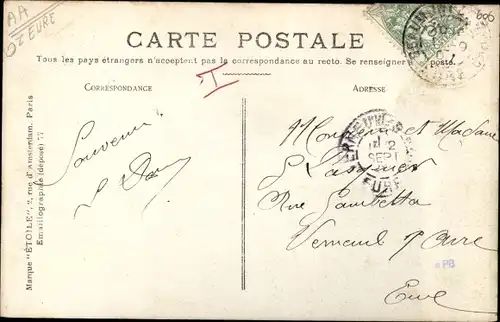 AA
02 EURE
CARTE POSTALE
Tous les pays étrangers n'acceptent pas la correspondance au recto. Se renseigner à la poste.
CORRESPONDANCE
ADRESSE
Souvenir
Monsieur et Madame
Rue Gambetta
Verneuil s/ Avre
Eure
12
SEPT
EURE
PB
Marque "ÉTOILE", 2, rue d'Amsterdam, Paris
Emaillographie (déposé) 77